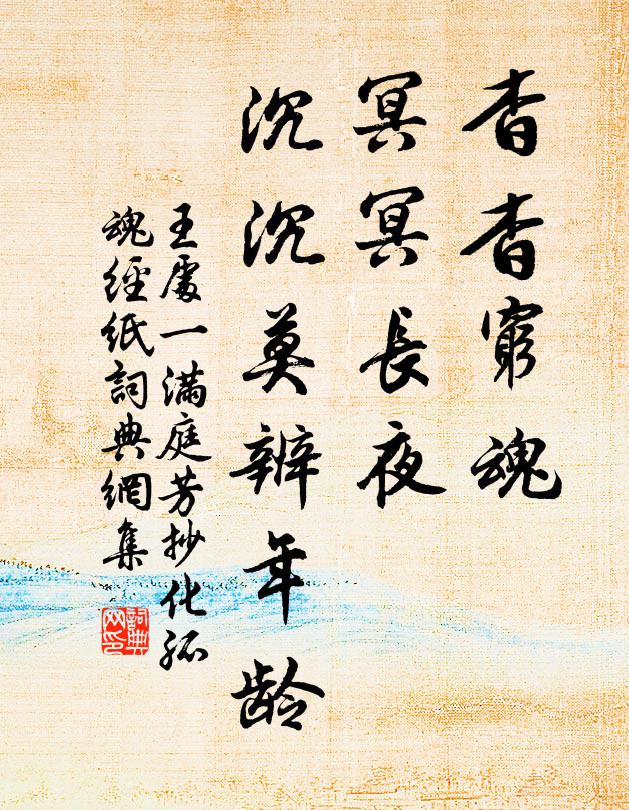 杳杳窮魂
冥冥長夜
沉沉莫辨年齡
王處一滿庭芳抄化孤
魂經紙詞典網集
詞典
网印